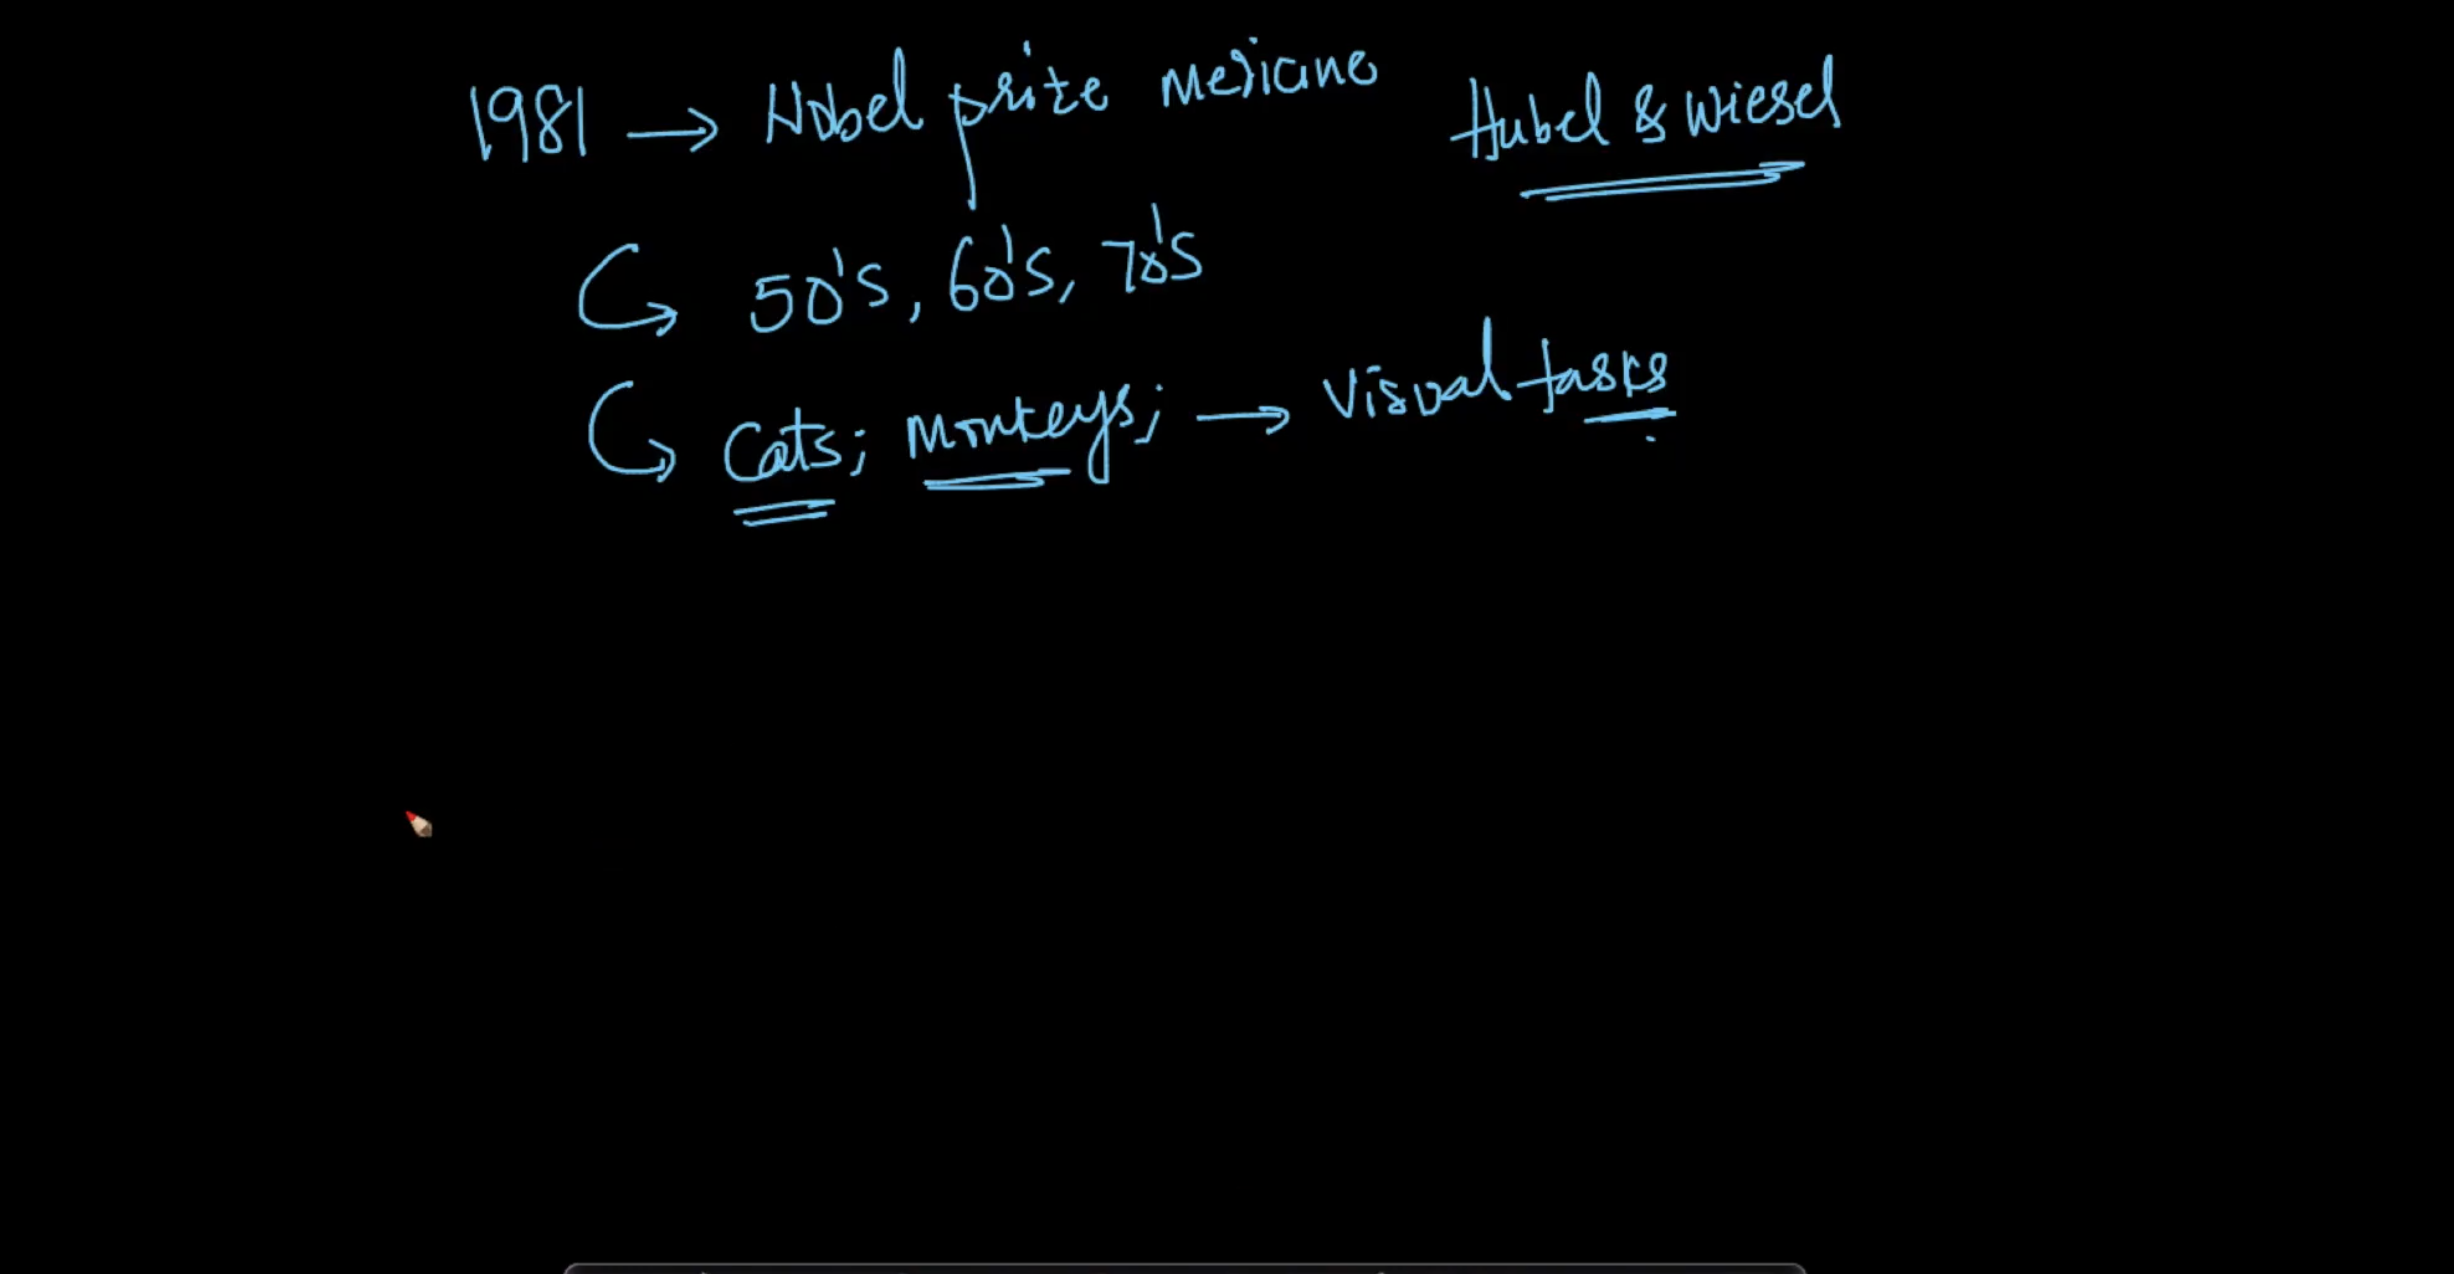 1981 → Nobel prize medicine Hubel & Wiesel
↳ 50's, 60's, 70's
↳ Cats; Monkeys; → Visual tasks